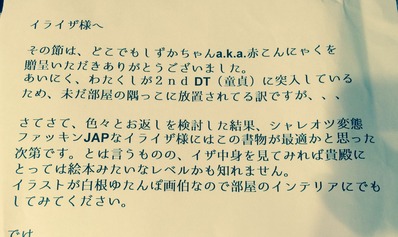 イライザ様へ
その節は、どこでもしずかちゃんa.k.a.赤こんにゃくを
贈呈いただきありがとうございました。
あいにく、わたくしが２ｎｄ DT（童貞）に突入している
ため、未だ部屋の隅っこに放置されてる訳ですが、、、
さてさて、色々とお返しを検討した結果、シャレオツ変態
ファッキンJAPなイライザ様にはこの書物が最適かと思った
次第です。とは言うものの、イザ中身を見てみれば貴殿に
とっては絵本みたいなレベルかも知れません。
イラストが白根ゆたんぽ画伯なので部屋のインテリアにでも
してみてください。
では